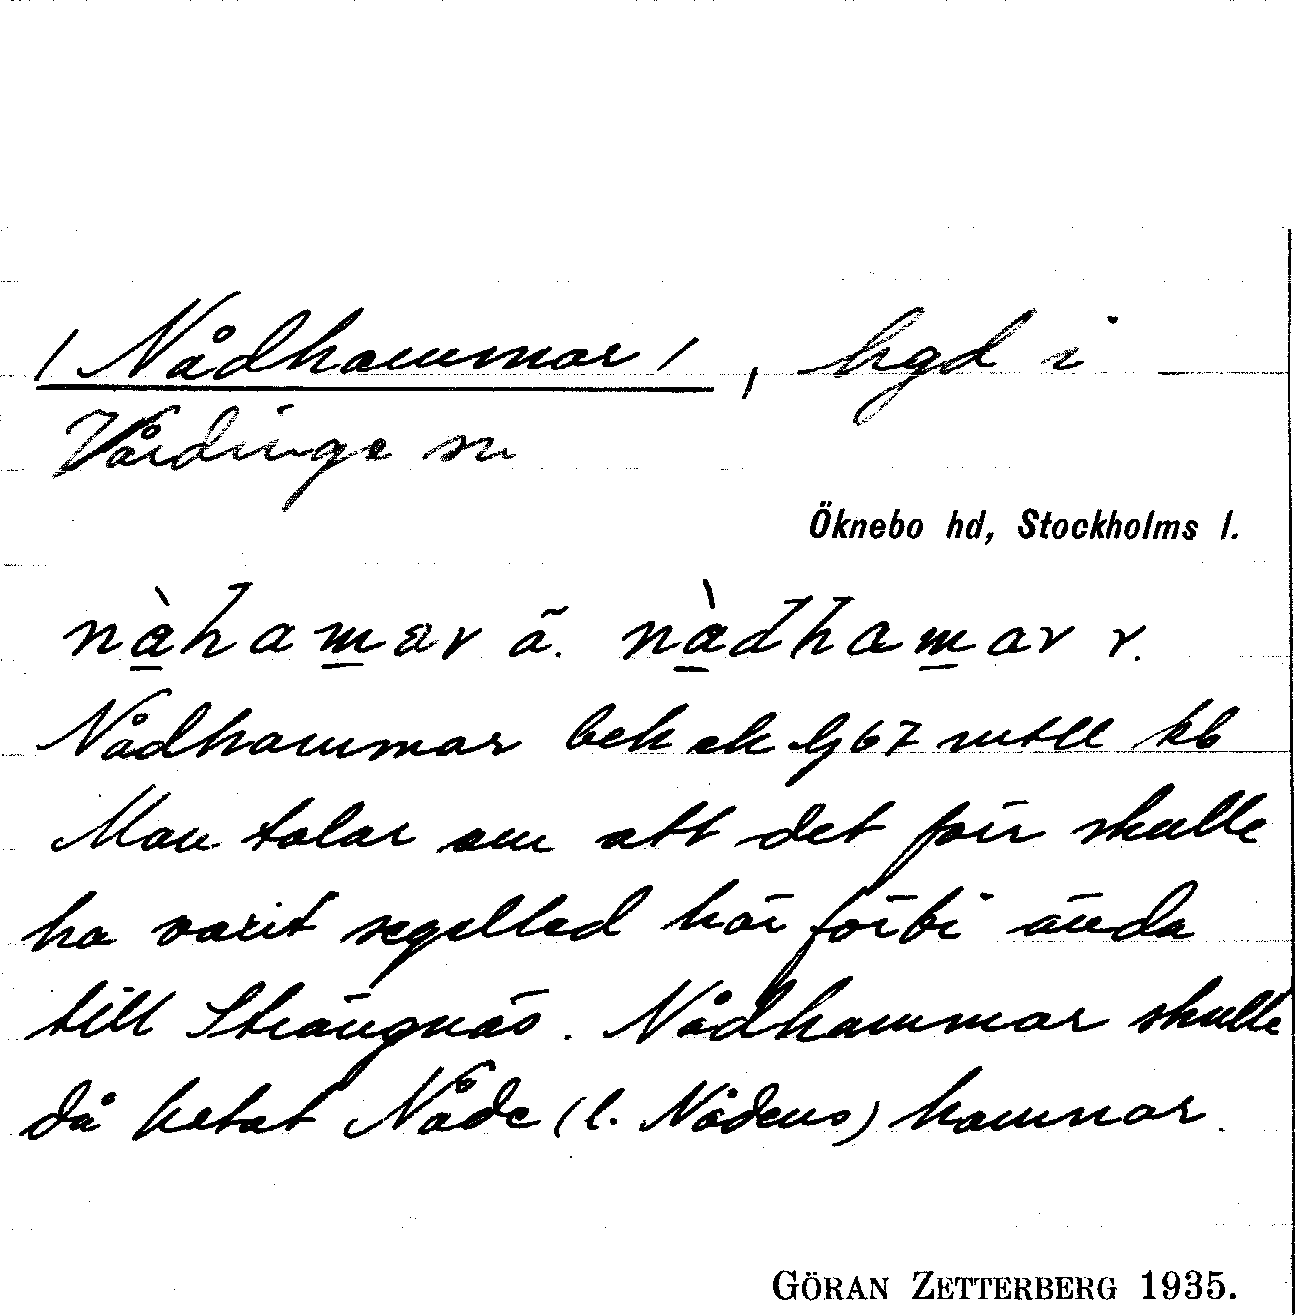 /Nådhammar/, hgd i
Vårdinge sn
Öknebo hd, Stockholms l.
nàhamar ä. nàdhamar y.
Nådhammar bek ek G 67 mtll kb
Man talar om att det förr skulle
ha varit segelled här förbi ända
till Strängnäs. Nådhammar skulle
då hetat Nåde (l. Nådens) hamnar.
GÖRAN ZETTERBERG 1935.